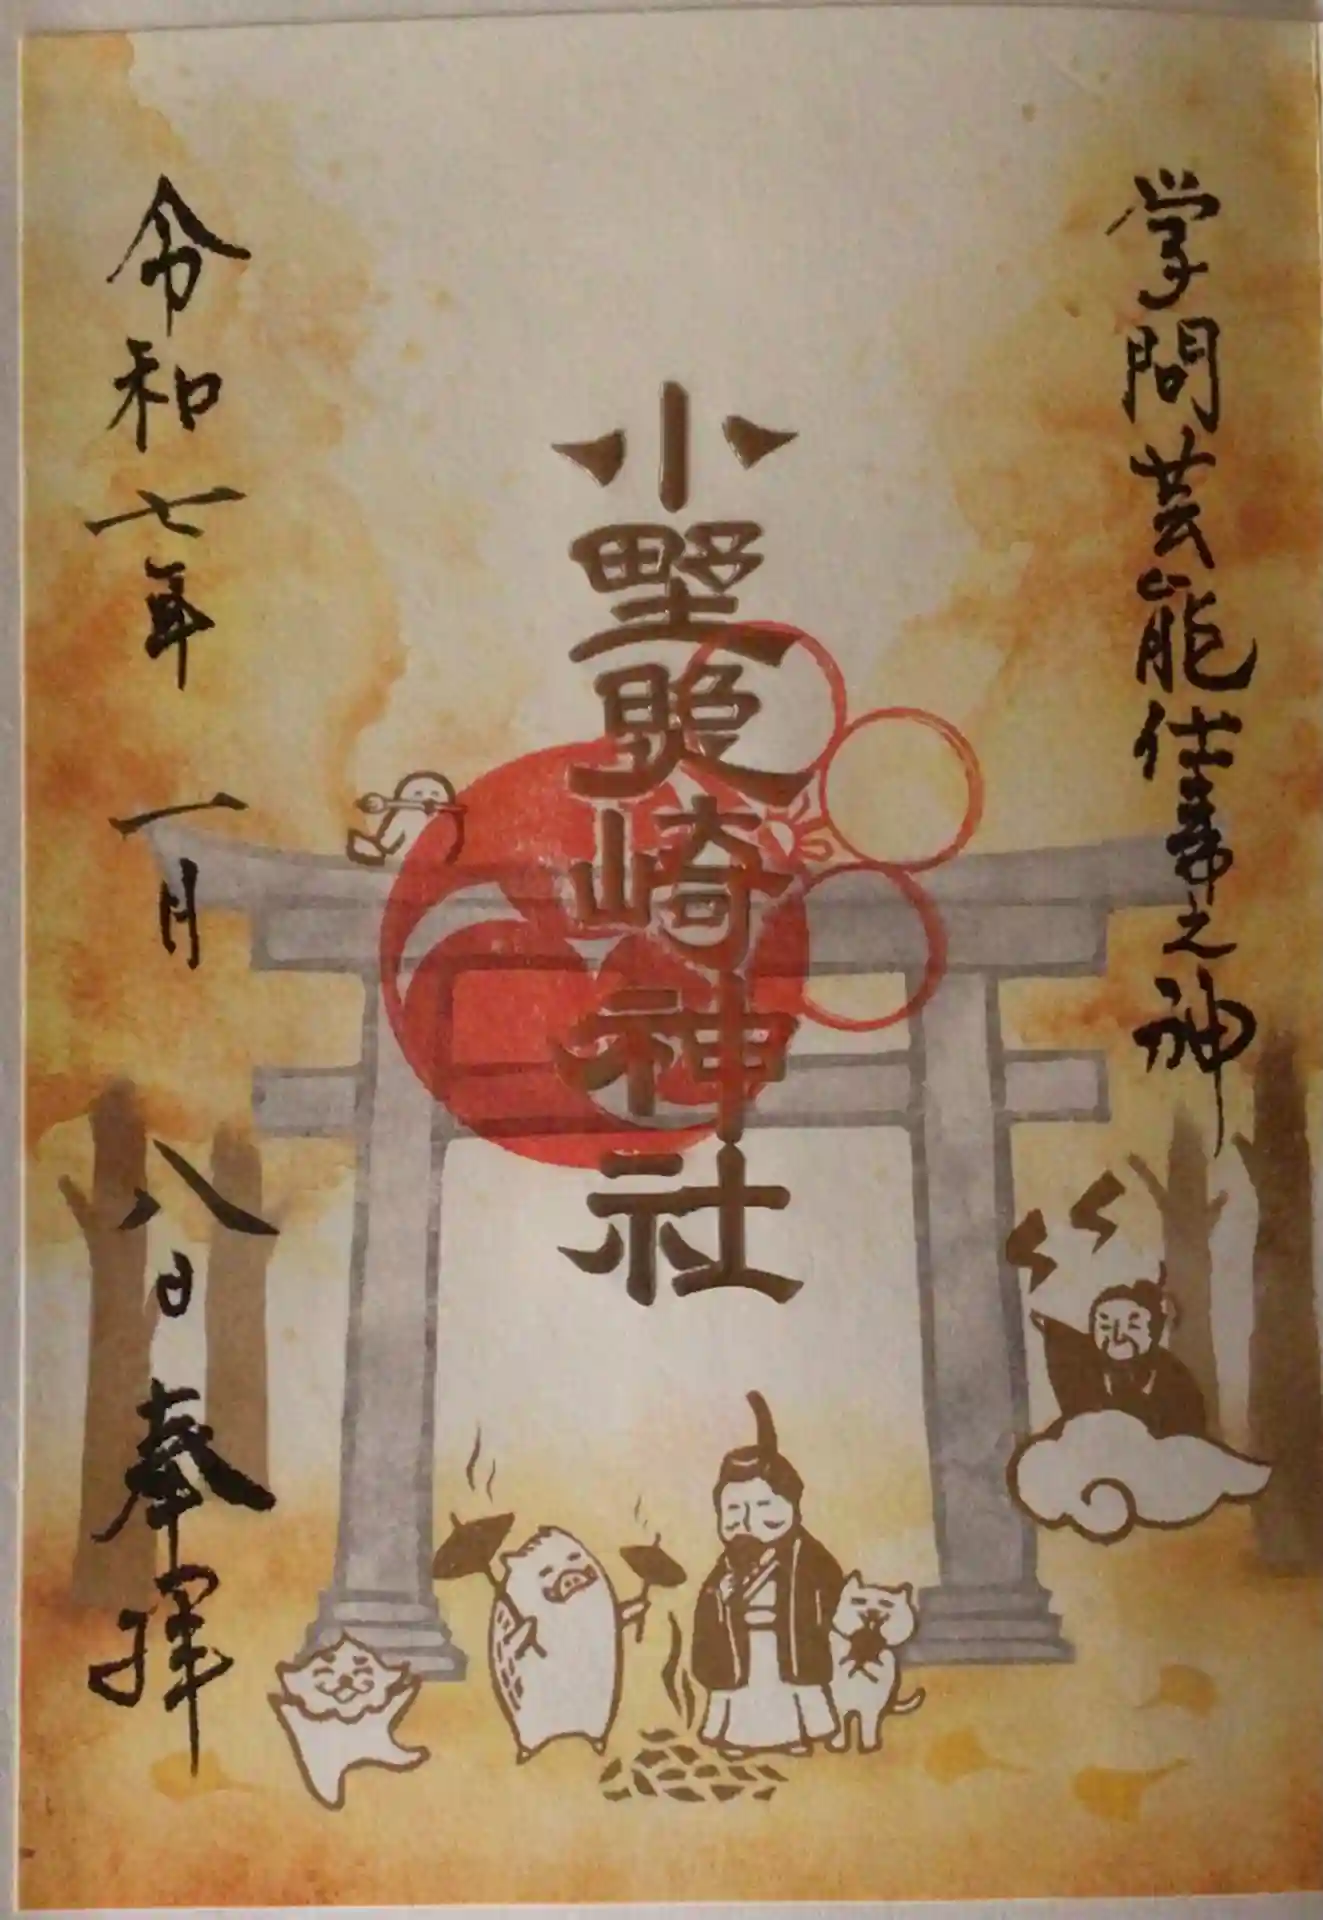 学問芸能仕事之神
小野照崎神社
令和七年一月八日奉拝